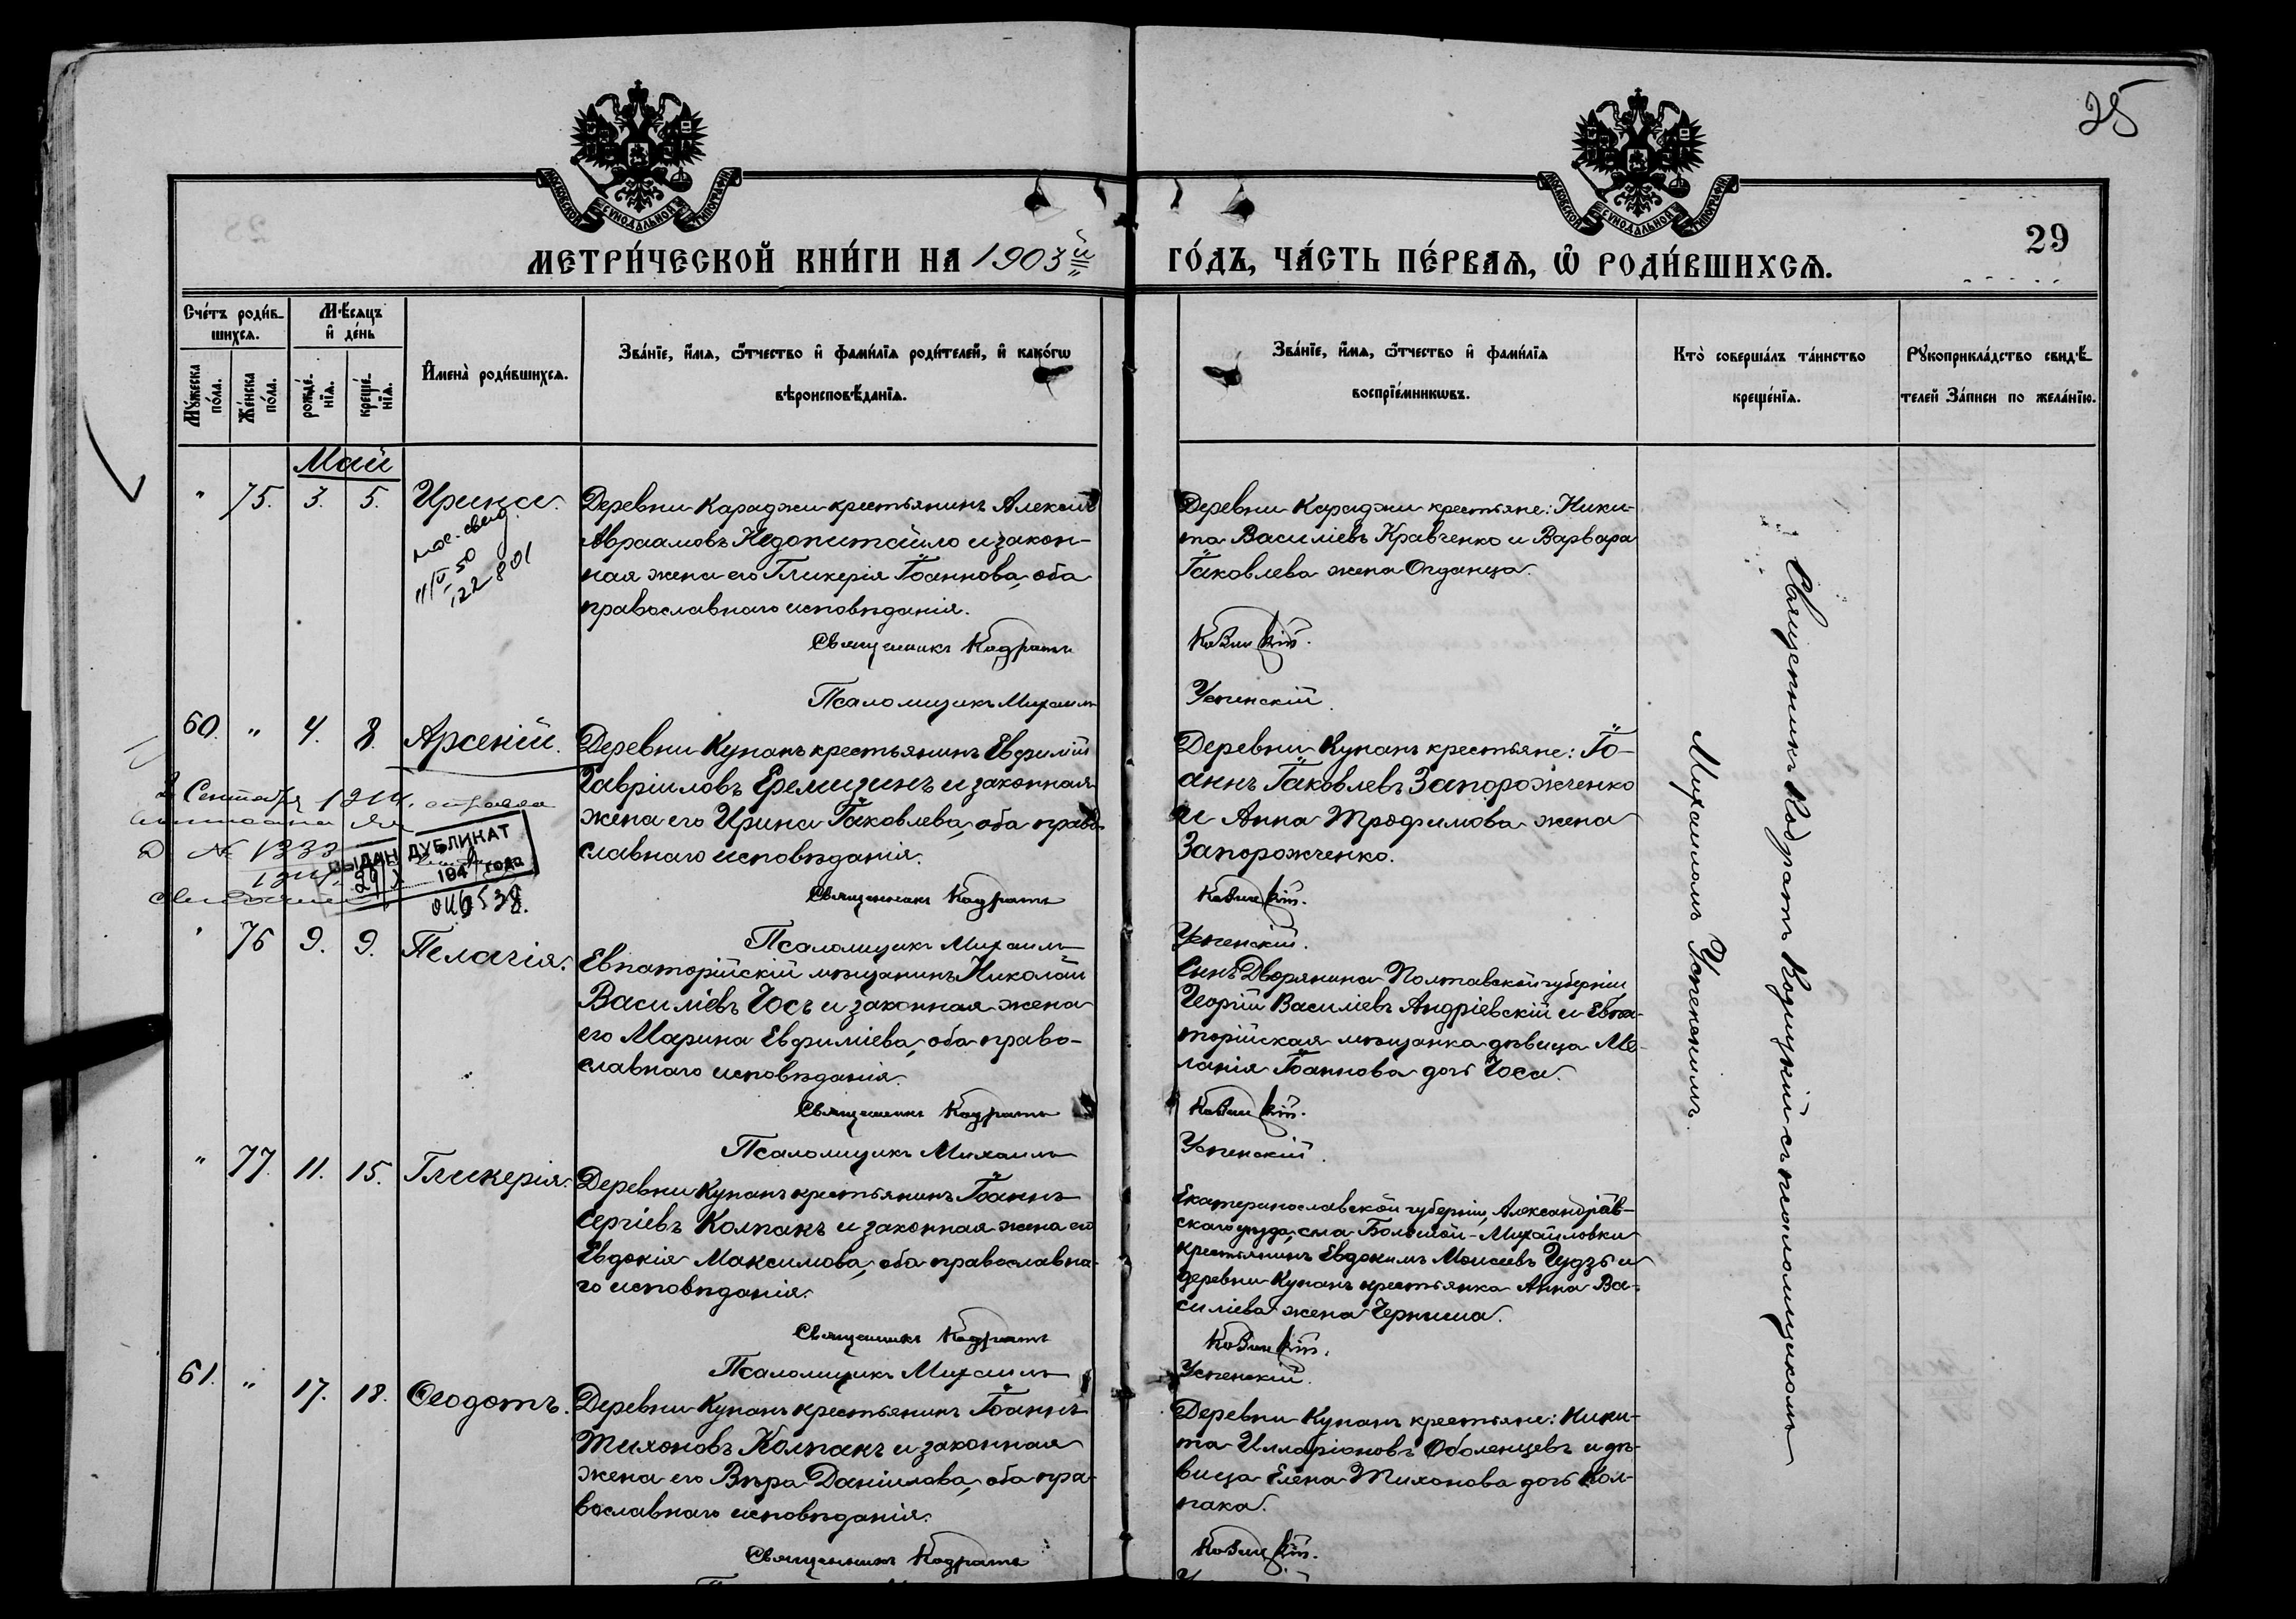 25
МОСКОВСКОЙ СУНОДАЛЬНОЙ ТИПОГРАФІИ
МОСКОВСКОЙ СУНОДАЛЬНОЙ ТИПОГРАФІИ
29
МЕТРИ́ЧЕСКОЙ КНИ́ГИ НА 1903й
ГО́ДЪ, ЧА́СТЬ ПЕ́РВАѦ, Ѡ РОДИ́ВШИХСѦ.
Сче́тъ роди́в-
шихсѧ.
Мꙋ́жеска по́ла.
Же́нска по́ла.
Мѣ́сѧцъ
и҆ де́нь
рожде́-
нїѧ.
креще́-
нїѧ.
И҆мена̀ роди́вшихсѧ.
Зва́нїе, и҆́мѧ, ѻ҆́тчество и҆ фами́лїѧ роди́телей, и҆ како́гѡ
вѣроисповѣ́данїѧ.
Зва́нїе, и҆́мѧ, ѻ҆́тчество и҆ фами́лїѧ
воспрїе́мникѡвъ.
Кто̀ соверша́лъ та́инство
креще́нїѧ.
Рꙋкоприкла́дство свидѣ́-
телей за́писи по жела́нїю.
Май
" 75. 3. 5. Ирина.
Деревни Караджи крестьянинъ Алексій
Авраамовъ Недопитайло и закон-
ная жена его Гликерія Іоаннова, оба
православнаго исповѣданія.
Священникъ Кодратъ
Псаломщикъ Михаилъ
Деревни Караджи крестьяне: Ники-
та Василіевъ Кравченко и Варвара
Іаковлева жена Опданца.
Успенскій.
свид.
11/V 50
122801
60. " 4. 8. Арсеній.
Деревни Купанъ крестьянинъ Евфимій
Гавріиловъ Еремизинъ и законная
жена его Ирина Іаковлева, оба право-
славнаго исповѣданія.
Священникъ Кодратъ
Псаломщикъ Михаилъ
Деревни Купанъ крестьяне: Іо-
аннъ Іаковлевъ Запорожченко
и Анна Трофимова жена
Запорожченко.
Успенскій.
2 Сентября 1914.
№ 1333
ВЫДАН ДУБЛИКАТ
29/X 194 года
" 76 9. 9. Пелагія.
Евпаторійскій мѣщанинъ Николай
Василіевъ Чосъ и законная жена
его Марина Евфиміева, оба право-
славнаго исповѣданія.
Священникъ Кодратъ
Псаломщикъ Михаилъ
Сынъ Дворянина Полтавской губерніи
Георгій Василіевъ Андріевскій и Евпа-
торійская мѣщанка дѣвица Ме-
ланія Іоаннова дочь Чоса.
Успенскій.
" 77. 11. 15. Гликерія.
Деревни Купанъ крестьянинъ Іоаннъ
Сергіевъ Колпакъ и законная жена его
Евдокія Максимова, оба православна-
го исповѣданія.
Священникъ Кодратъ
Псаломщикъ Михаилъ
Екатеринославской губерніи, Александров-
скаго уѣзда, села Большой-Михайловки
крестьянинъ Евдокимъ Моисеевъ Гудзь и
деревни Купанъ крестьянка Анна Ва-
силіева жена Черныша.
Успенскій.
61. " 17. 18. Ѳеодотъ.
Деревни Купанъ крестьянинъ Іоаннъ
Тихоновъ Колпакъ и законная
жена его Вѣра Даніилова, оба пра-
вославнаго исповѣданія.
Священникъ Кодратъ
Деревни Купанъ крестьяне: Ники-
та Илларіоновъ Оболенцевъ и дѣ-
вица Елена Тихонова дочь Кол-
пака.
Священникъ Кодратъ съ псаломщикомъ
Михаиломъ Успенскимъ.